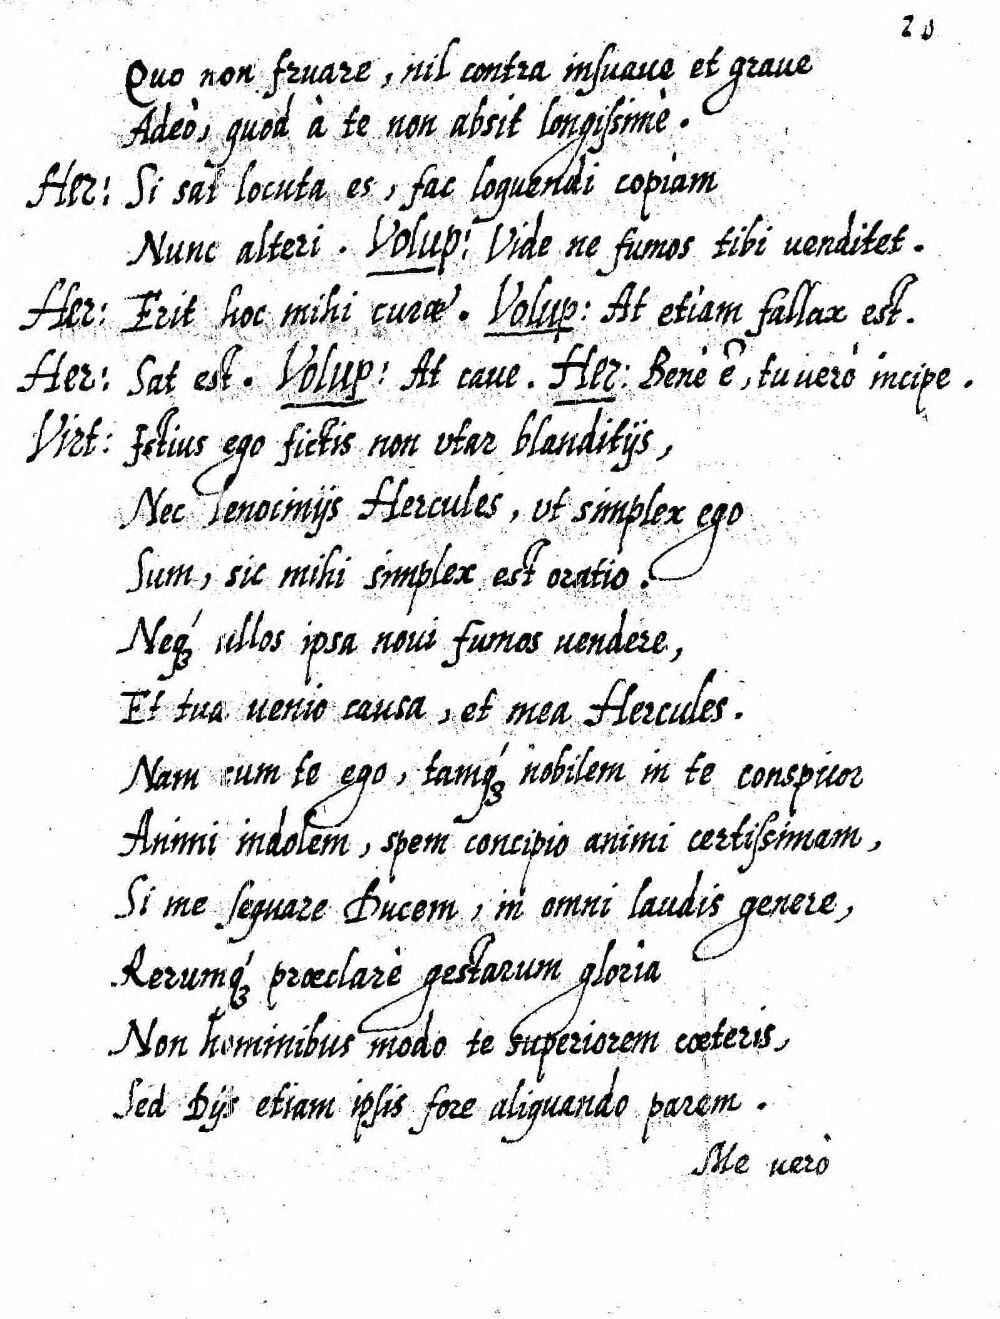 Quo non fruare, nil contra insuaue et graue
Adeò, quod à te non absit longissimè.
Her: Si sat locuta es, fac loquendi copiam
Nunc alteri. Volup: Vide ne fumos tibi uenditet.
Her: Erit hoc mihi curæ. Volup: At etiam fallax est.
Her: Sat est. Volup: At caue. Her: Benè ê, tu uerò incipe.
Virt: Istius ego fictis non vtar blanditijs,
Nec lenocinijs Hercules, vt simplex ego
Sum, sic mihi simplex est oratio.
Neqꝫ ullos ipsa noui fumos uendere,
Et tua uenio causa, et mea Hercules.
Nam cum te ego, tamqꝫ nobilem in te conspicor
Animi indolem, spem concipio animi certissimam,
Si me sequare Ducem, in omni laudis genere,
Rerumqꝫ præclarè gestarum gloria
Non hominibus modo te superiorem cæteris,
Sed Dijs etiam ipsis fore aliquando parem.
Me uerò